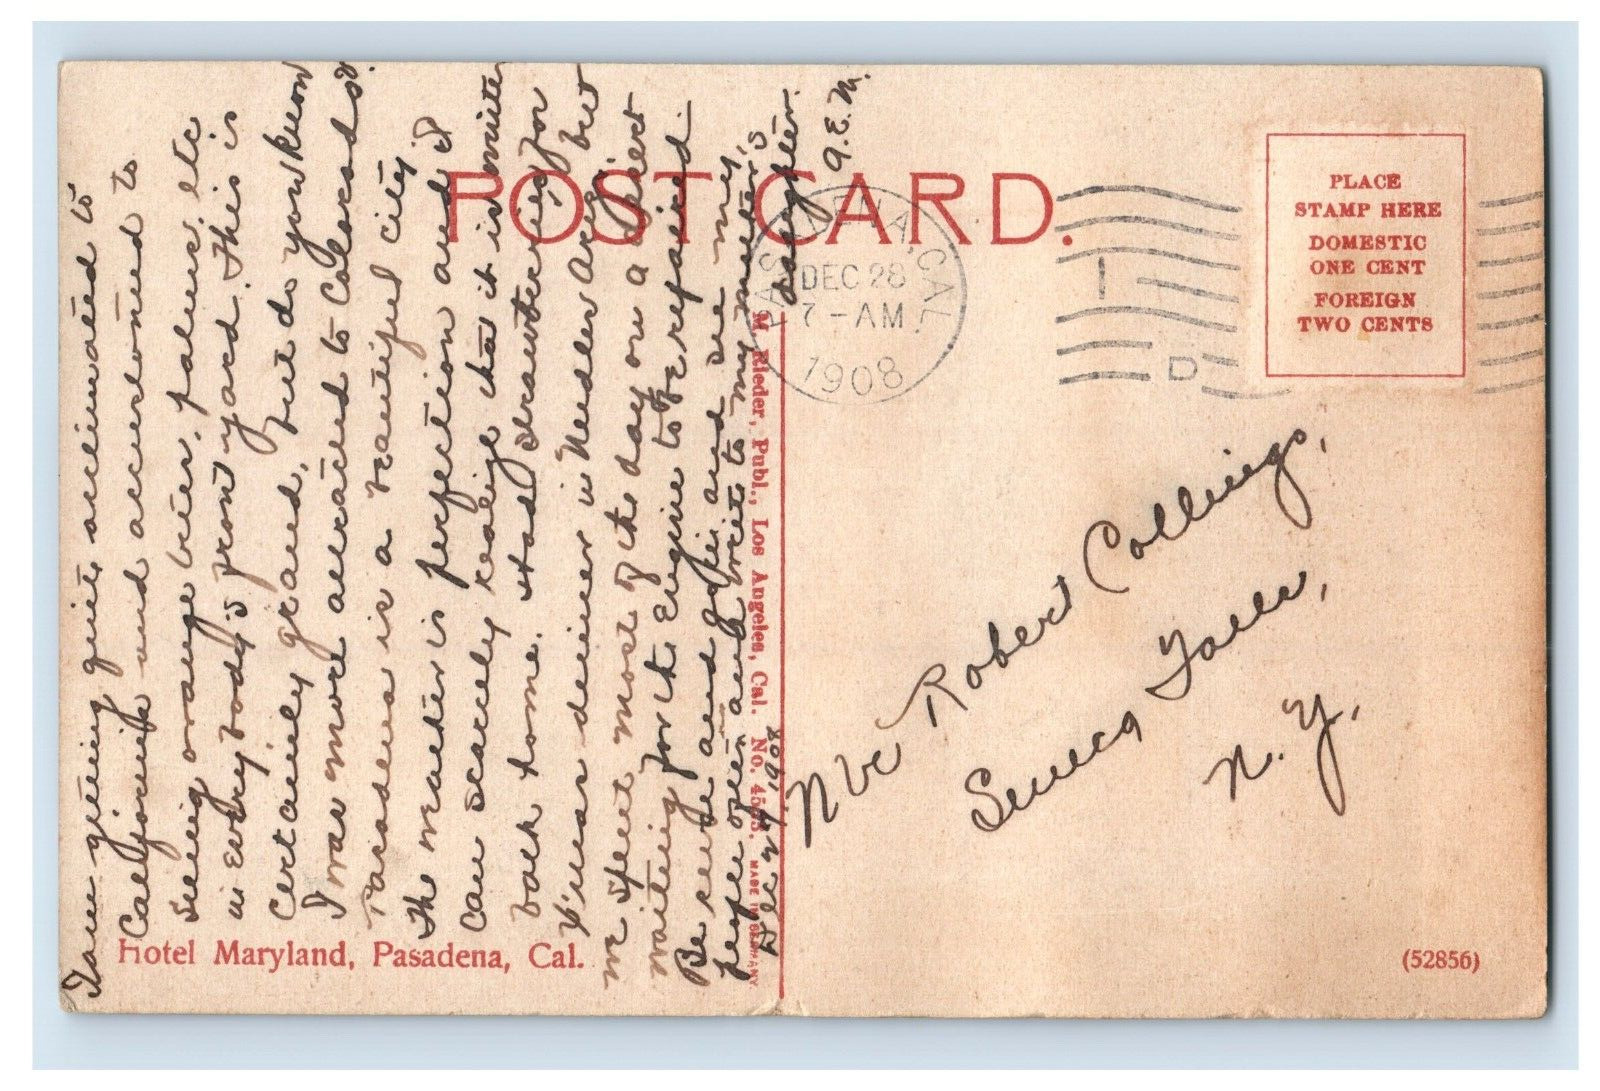 POST CARD.
PLACE
STAMP HERE
DOMESTIC
ONE CENT
FOREIGN
TWO CENTS
PASADENA, CAL.
DEC 28
7-AM
1908
1
D
I am getting quite acclimated to
California and accustomed to
seeing orange trees, palms, etc
in every body's front yard. This is
certainly grand, but do you know
I was more attracted to Colorado?
Pasadena is a beautiful city
the weather is perfection and I
can scarcely realize that it is winter
back home. Had strawberries for
X'mas dinner in Needles Ariz. but
we spent most of the day on a desert
waiting for the Engine to be repaired.
Be sure and go in and see my
people often and write to my mother's
daughter.
A.E.M.
Dec 27, 1908
M. Rieder, Publ., Los Angeles, Cal. No. MADE IN GERMANY
Hotel Maryland, Pasadena, Cal.
Robert Collings,
Seneca Falls,
N. Y.
(52856)